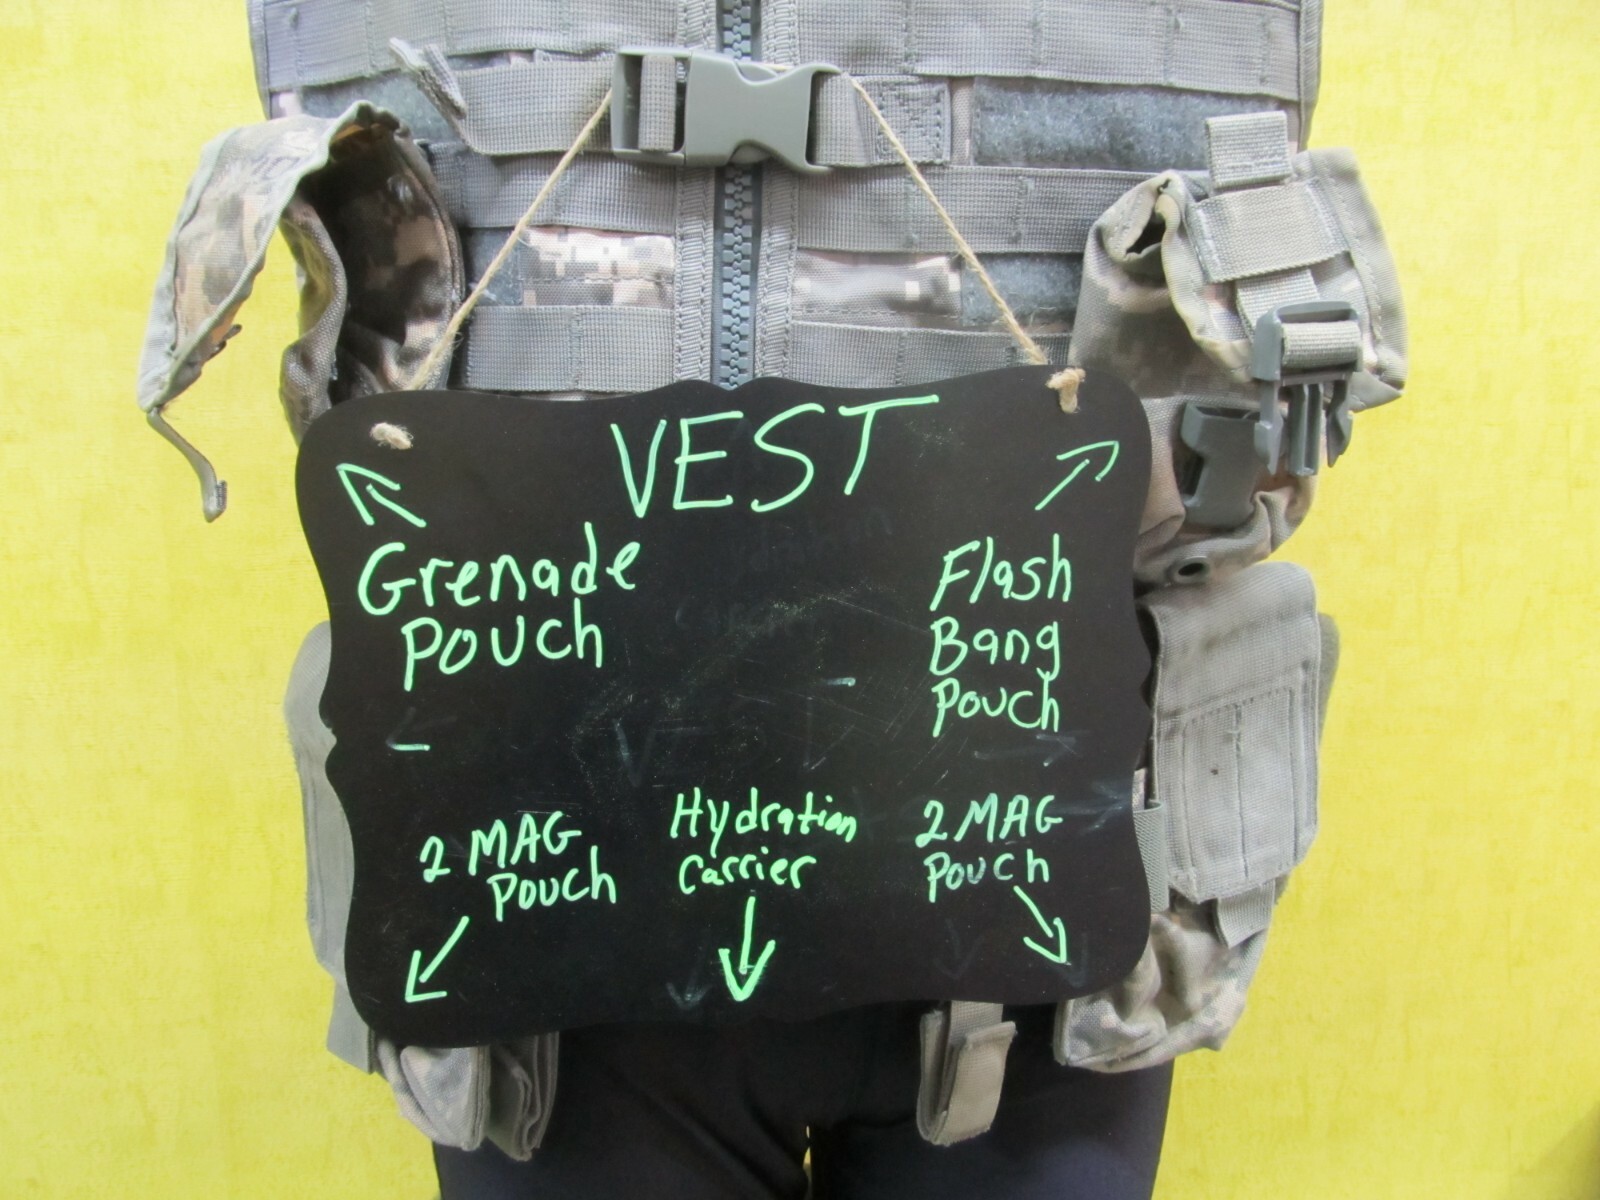 VEST
Grenade
Pouch
Flash
Bang
Pouch
2 MAG
Pouch
Hydration
Carrier
2 MAG
Pouch